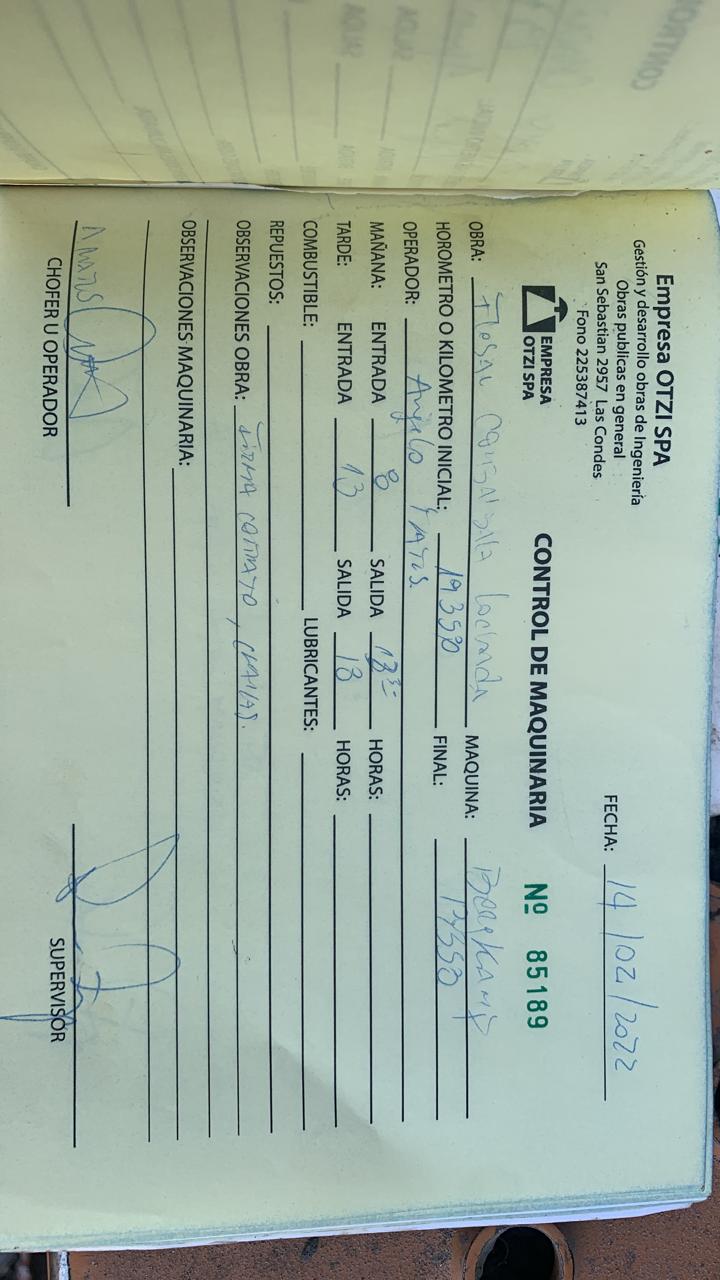 Empresa OTZI SPA
Gestión y desarrollo obras de Ingeniería
Obras publicas en general
San Sebastian 2957 Las Condes
Fono 225387413
FECHA: 14/02/2022
EMPRESA
OTZI SPA
CONTROL DE MAQUINARIA
Nº 85189
OBRA: MAQUINA:
HOROMETRO O KILOMETRO INICIAL: FINAL:
OPERADOR: Angelo
MAÑANA: ENTRADA 8 SALIDA HORAS:
TARDE: ENTRADA 13 SALIDA 18 HORAS:
COMBUSTIBLE: LUBRICANTES:
REPUESTOS:
OBSERVACIONES OBRA: FIRMA
OBSERVACIONES MAQUINARIA:
CHOFER U OPERADOR
SUPERVISOR